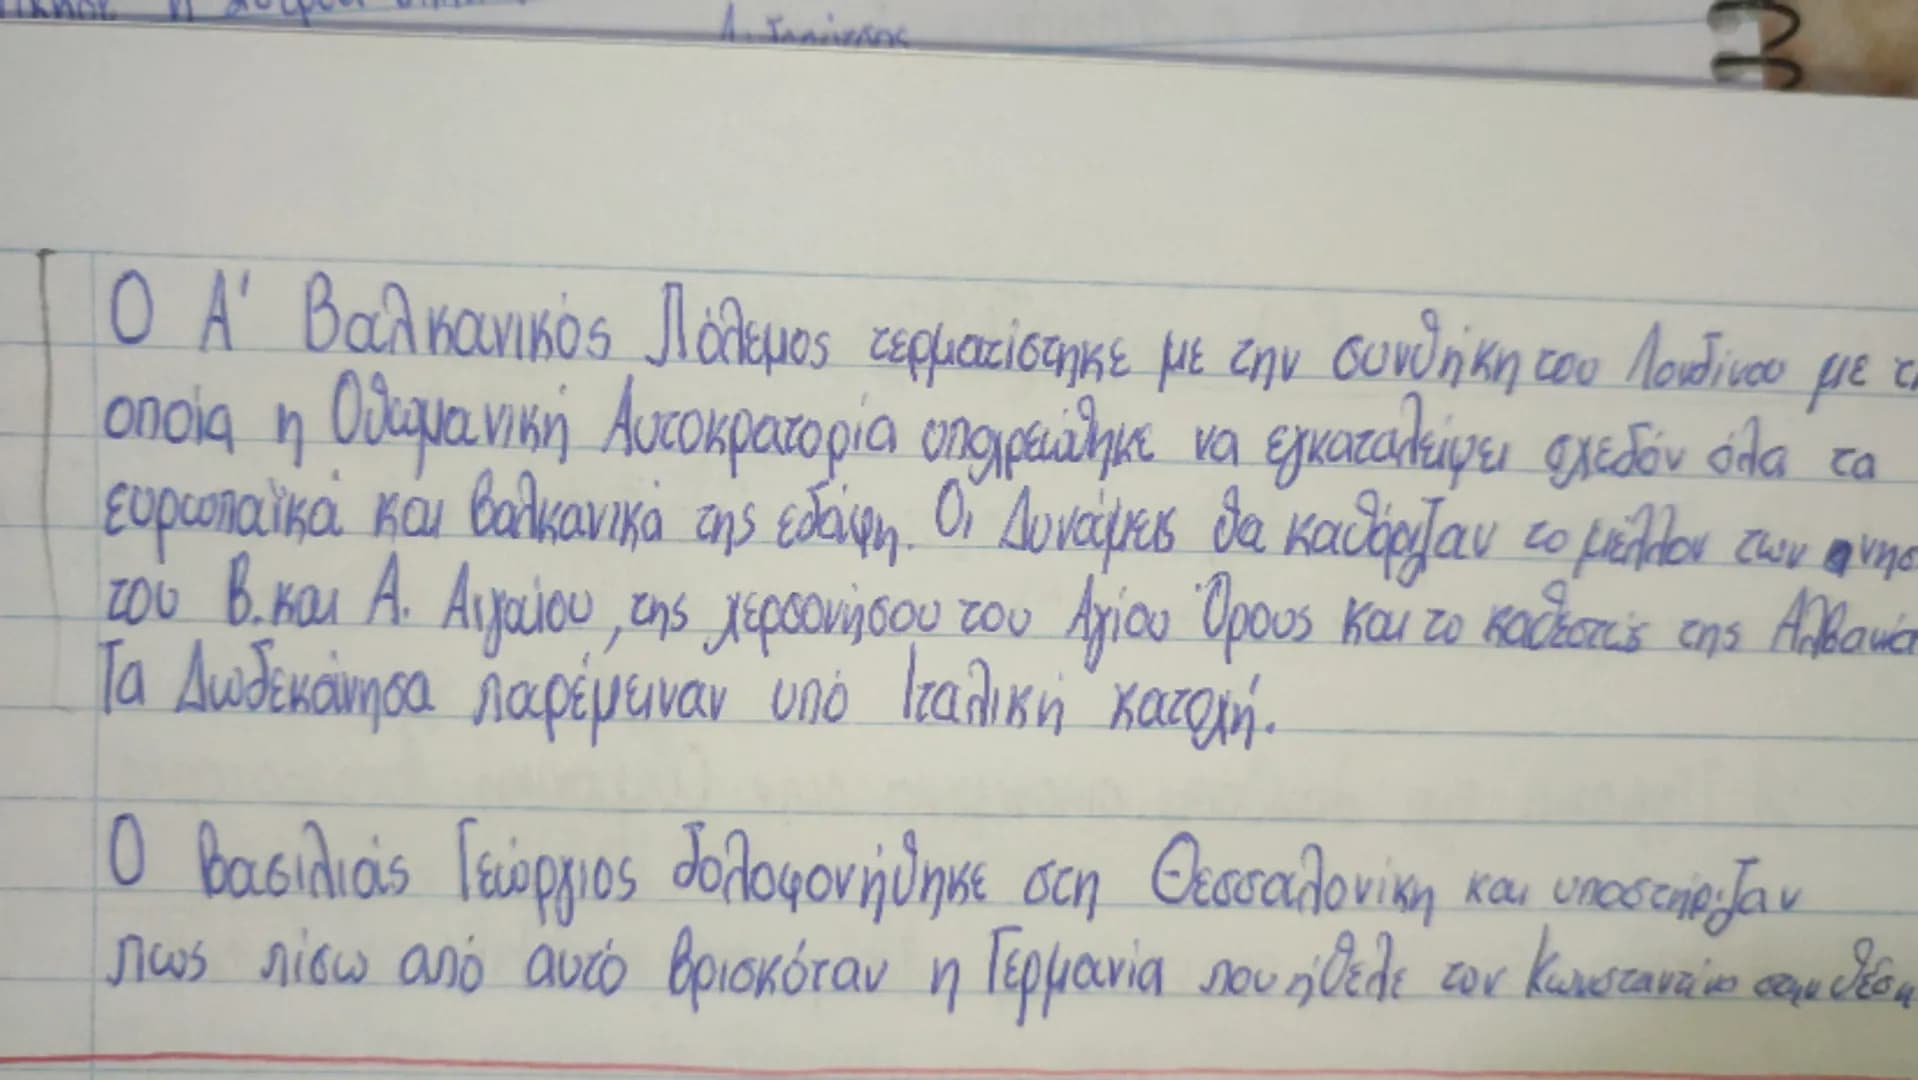 Ο Α' Βαλκανικός Πόλεμος τερματίστηκε με την συνθήκη του Λονδίνου με τ
οποία η Οθωμανική Αυτοκρατορία υποχρεώθηκε να εγκαταλείψει σχεδόν όλα τα
ευρωπαϊκά και βαλκανικά της εδάφη. Οι Δυνάμεις θα καθόριζαν το μέλλον των νησ
του Β. και Α. Αιγαίου, της χερσονήσου του Αγίου Όρους και το καθεστώς της Αλβανία
Τα Δωδεκάνησα παρέμειναν υπό Ιταλική κατοχή.
Ο Βασιλιάς Γεώργιος δολοφονήθηκε στη Θεσσαλονίκη και υποστήριζαν
πως πίσω από αυτό βρισκόταν η Γερμανία που ήθελε τον Κωνσταντίνο στην θέση